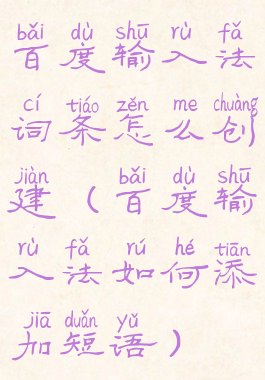 bǎi dù shū rù fǎ
百度输入法
cí tiáo zěn me chuàng
词条怎么创
jiàn bǎi dù shū
建（百度输
rù fǎ rú hé tiān
入法如何添
jiā duǎn yǔ
加短语）